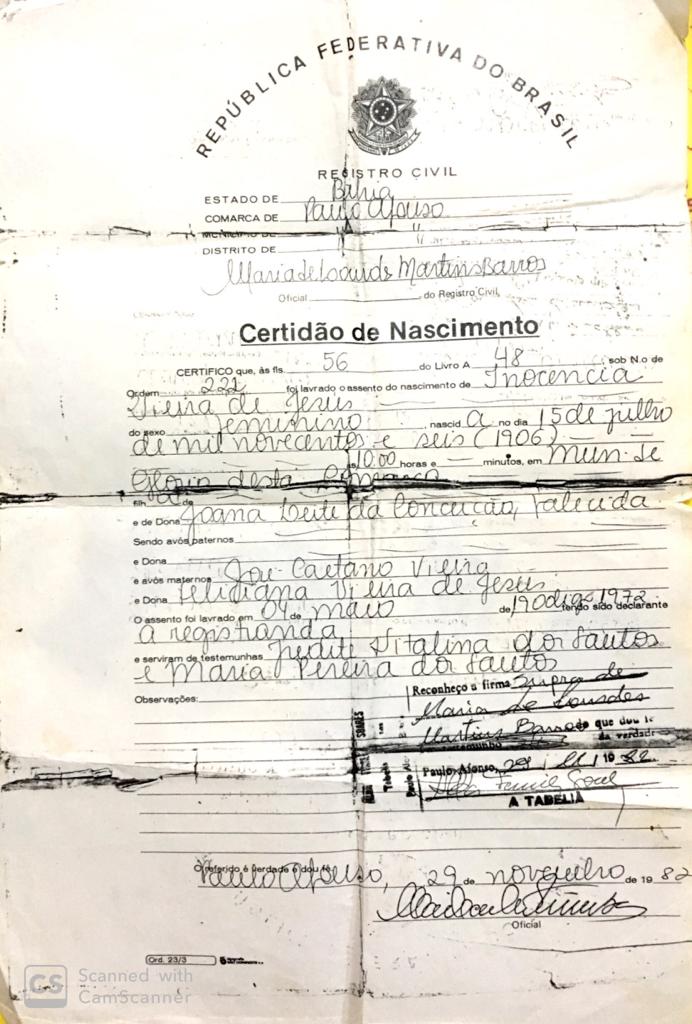 REPÚBLICA FEDERATIVA DO BRASIL
REGISTRO CIVIL
ESTADO DE Bahia
COMARCA DE Paulo Afonso
MUNICÍPIO DE
DISTRITO DE " "
Maria de Lourdes Martins Barros
Oficial do Registro Civil
Certidão de Nascimento
CERTIFICO que, às fls. 56 do Livro A 48 sob N.o de
Ordem 221 foi lavrado o assento do nascimento de Inocencia
Vieira de Jesus
do sexo feminino, nascid a no dia 15 de julho
de mil novecentos e seis (1906)
às 10.00 horas e minutos, em Mun. de
Gloria desta Comarca
filh a de
e de Dona Joana Leite da Conceição, falecida
Sendo avós paternos
e Dona
e avós maternos José Caetano Vieira
e Dona Feliciana Vieira de Jesus
O assento foi lavrado em 04 de maio de 190 digo 1972 tendo sido declarante
a registranda
e serviram de testemunhas Vitalina dos Santos
e Maria Pereira dos Santos
Observações:
Reconheço a firma supra de
Maria de Lourdes
Martins Barros do que dou fé
testemunho da verdade
Paulo Afonso, 29 11 1982
A TABELIÃ
O referido é verdade e dou fé.
Paulo Afonso, 29 de novembro de 1982
Oficial
Ord. 23/3
CS Scanned with
CamScanner